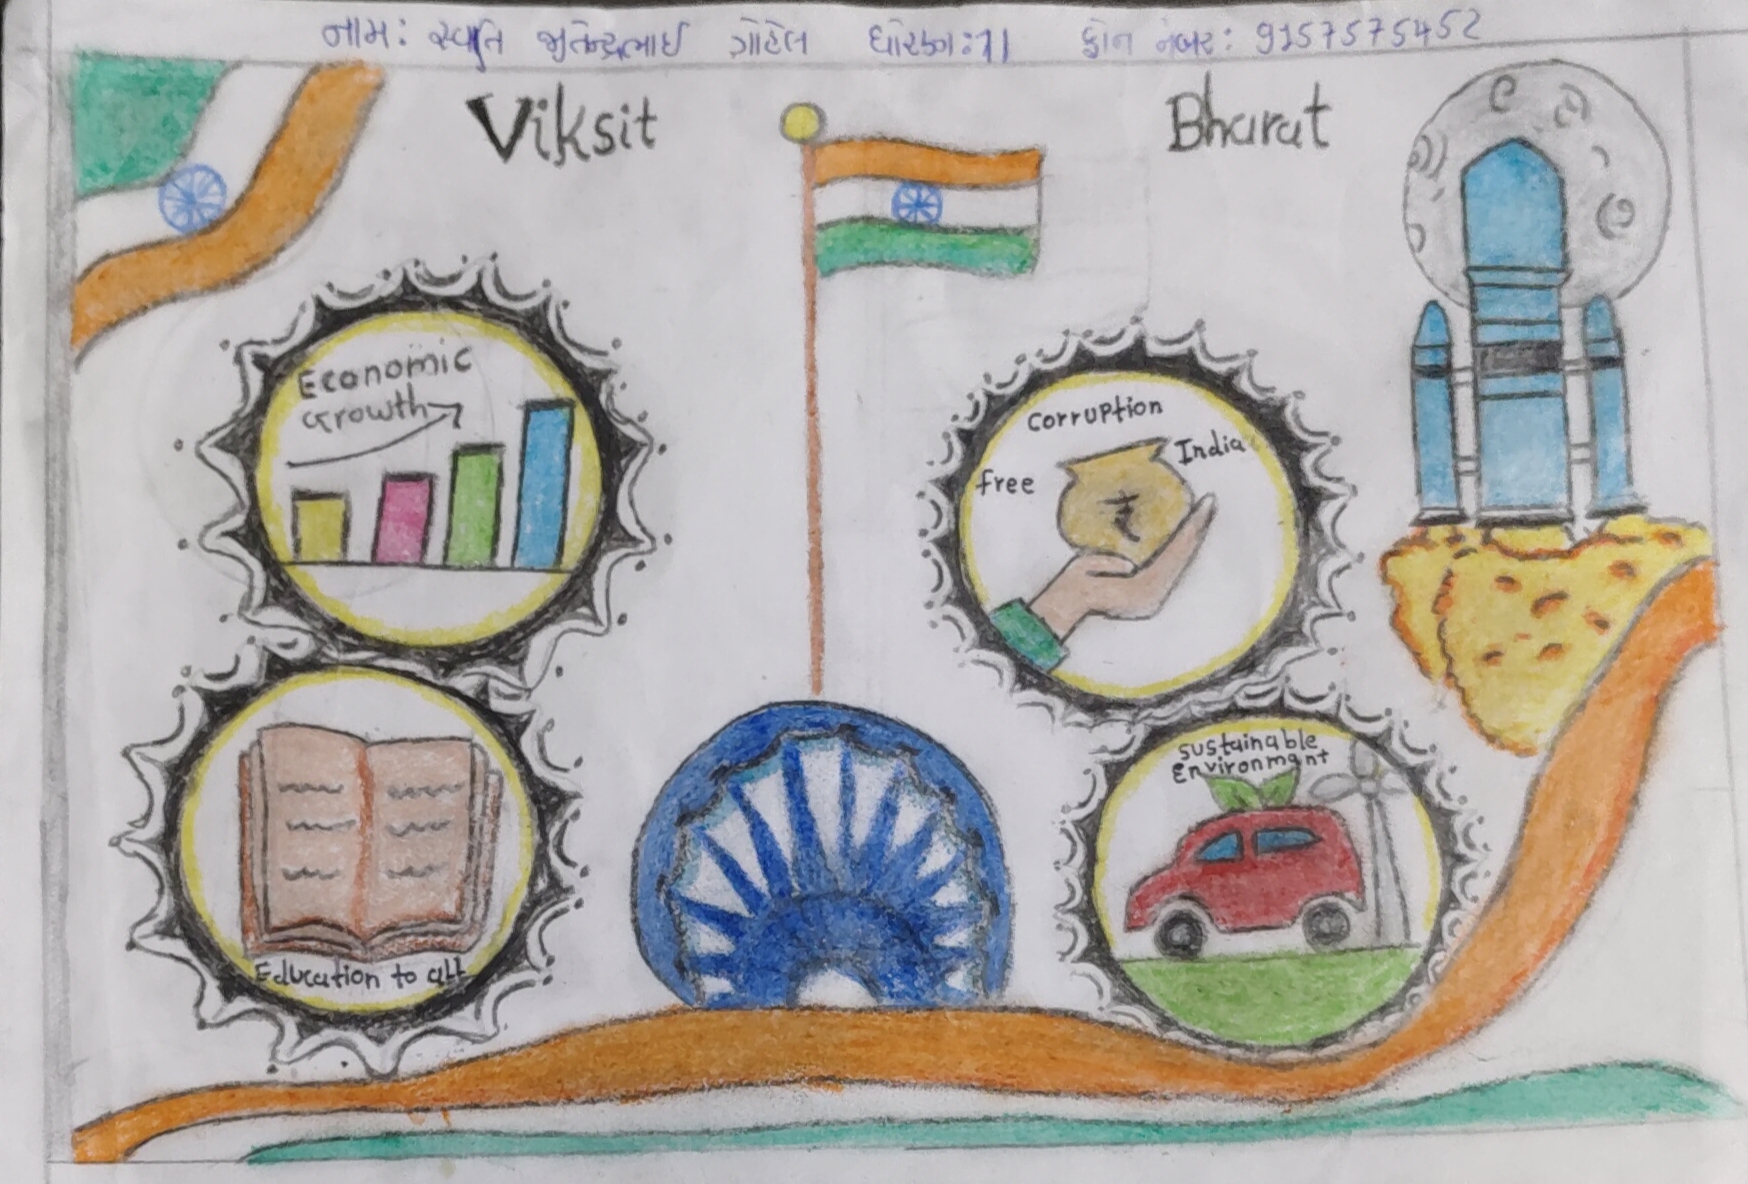 નામ: સ્તુતિ જીતેન્દ્રભાઈ ગોહેલ ધોરણ: 11 ફોન નંબર: 9157575452
Viksit Bharat
Economic
Growth
Corruption
free India
₹
Education to all
sustainable
Environmant